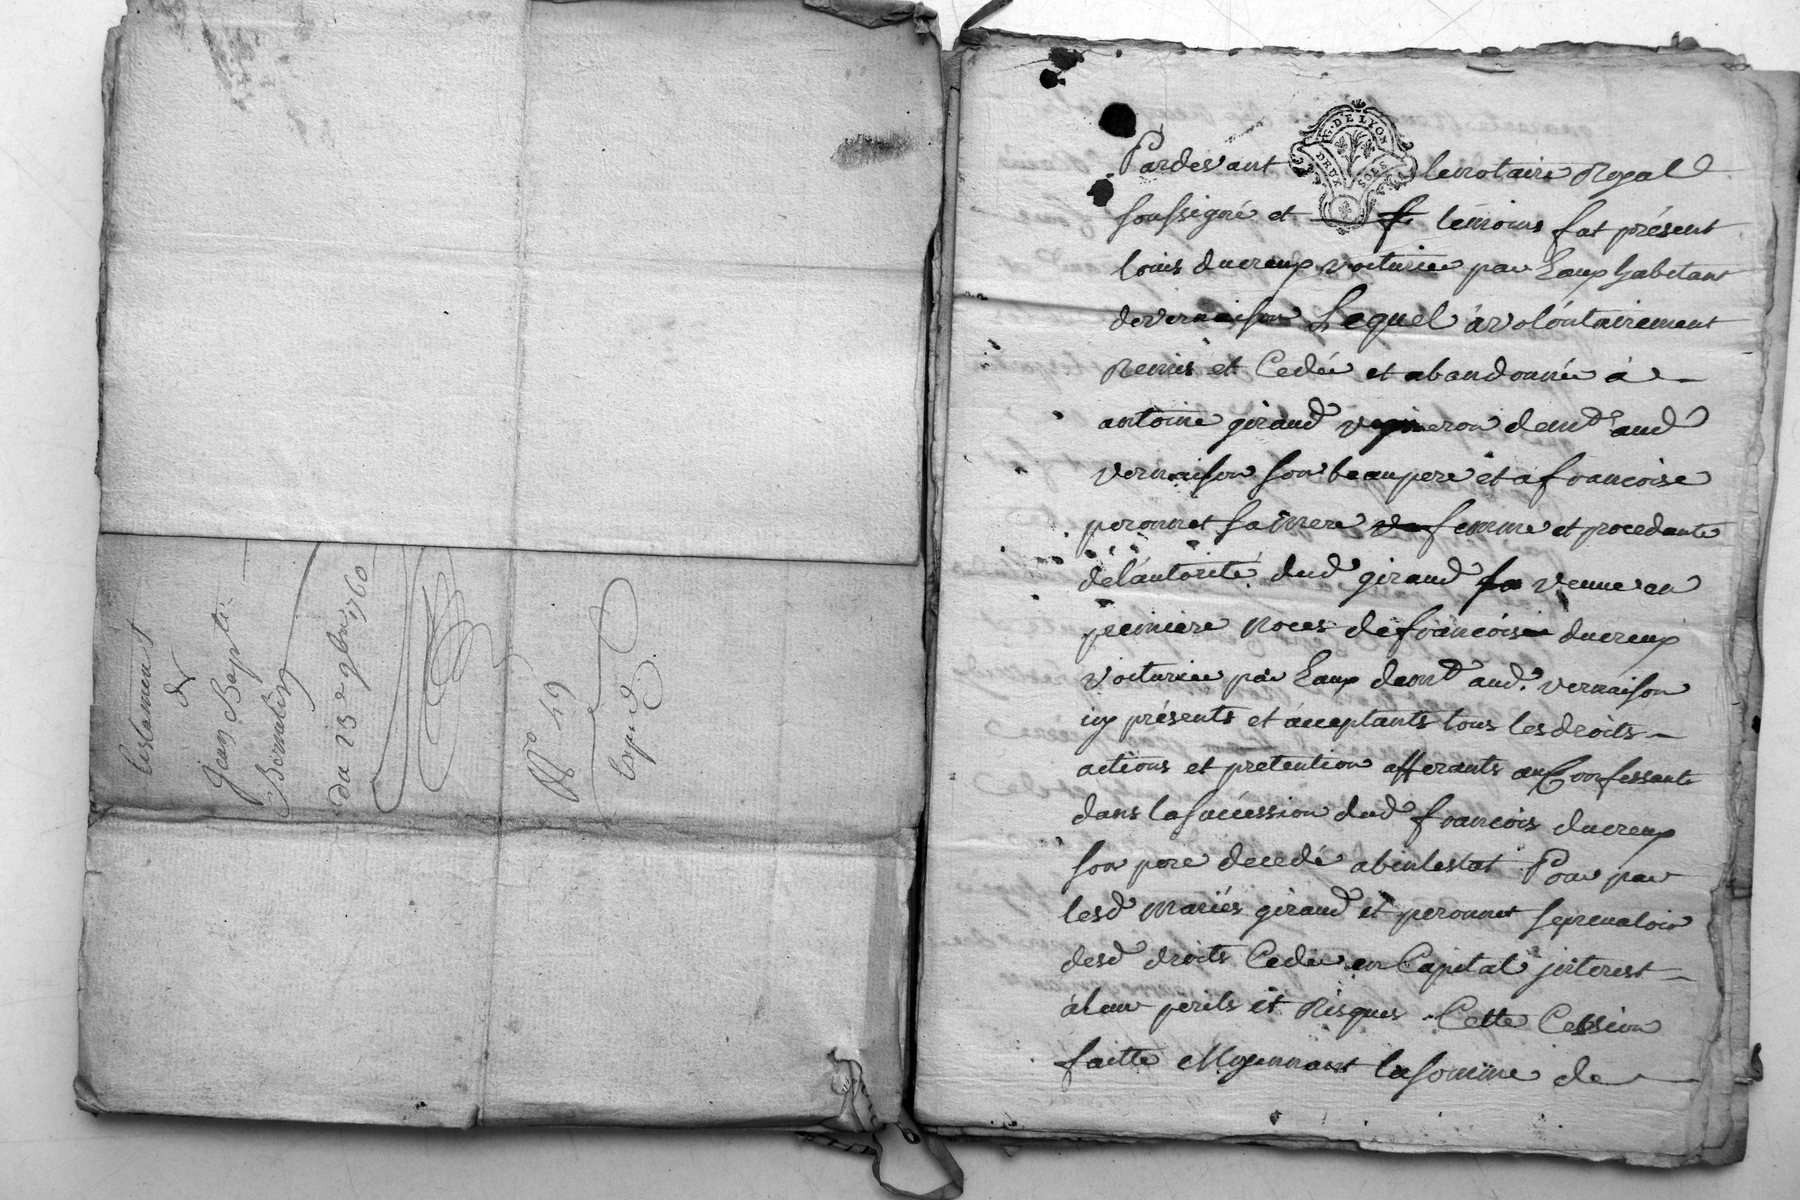 testament
de
Jean Baptte
Bernalin
du 23e 9bre 1760
No 49
Exped
G. DE LYON
DEUX SOLS
Pardevant lenotaire Royal
soussigné et temoins fut présent
louis ducreux voiturier par Eaux habitant
devernaison Lequel avolontairement
Remis et Cedée et abandonnée a
antoine giraud vigneron demt aud
vernaison son beaupere et afrancoise
peronnet samere femme et procedante
delautorité dud giraud veuve en
premiere noces defrancois ducreux
voiturier par Eaux demt aud. vernaison
icy présents et acceptants tous lesdroits
actions et pretention afferants auConfessant
dans lasuccession dud francois ducreux
son pere decedé abintestat Pour par
lesd mariés giraud et peronnet seprevaloir
desd droits Cedée en Capital interest
aleur perils et Risques. Cette Cession
faitte Moyennant lasomme de